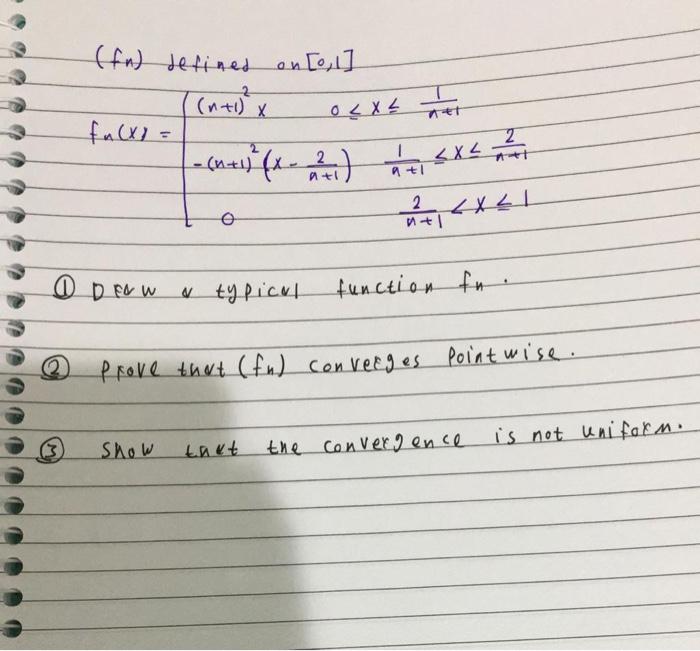 (fn) defined on [0,1]
fn(x) = { (n+1)² x 0 ≤ x ≤ 1/(n+1)
-(n+1)² (x - 2/(n+1)) 1/(n+1) ≤ x ≤ 2/(n+1)
0 2/(n+1) < x ≤ 1
① Draw a typical function fn.
② Prove that (fn) converges pointwise.
③ Show that the convergence is not uniform.